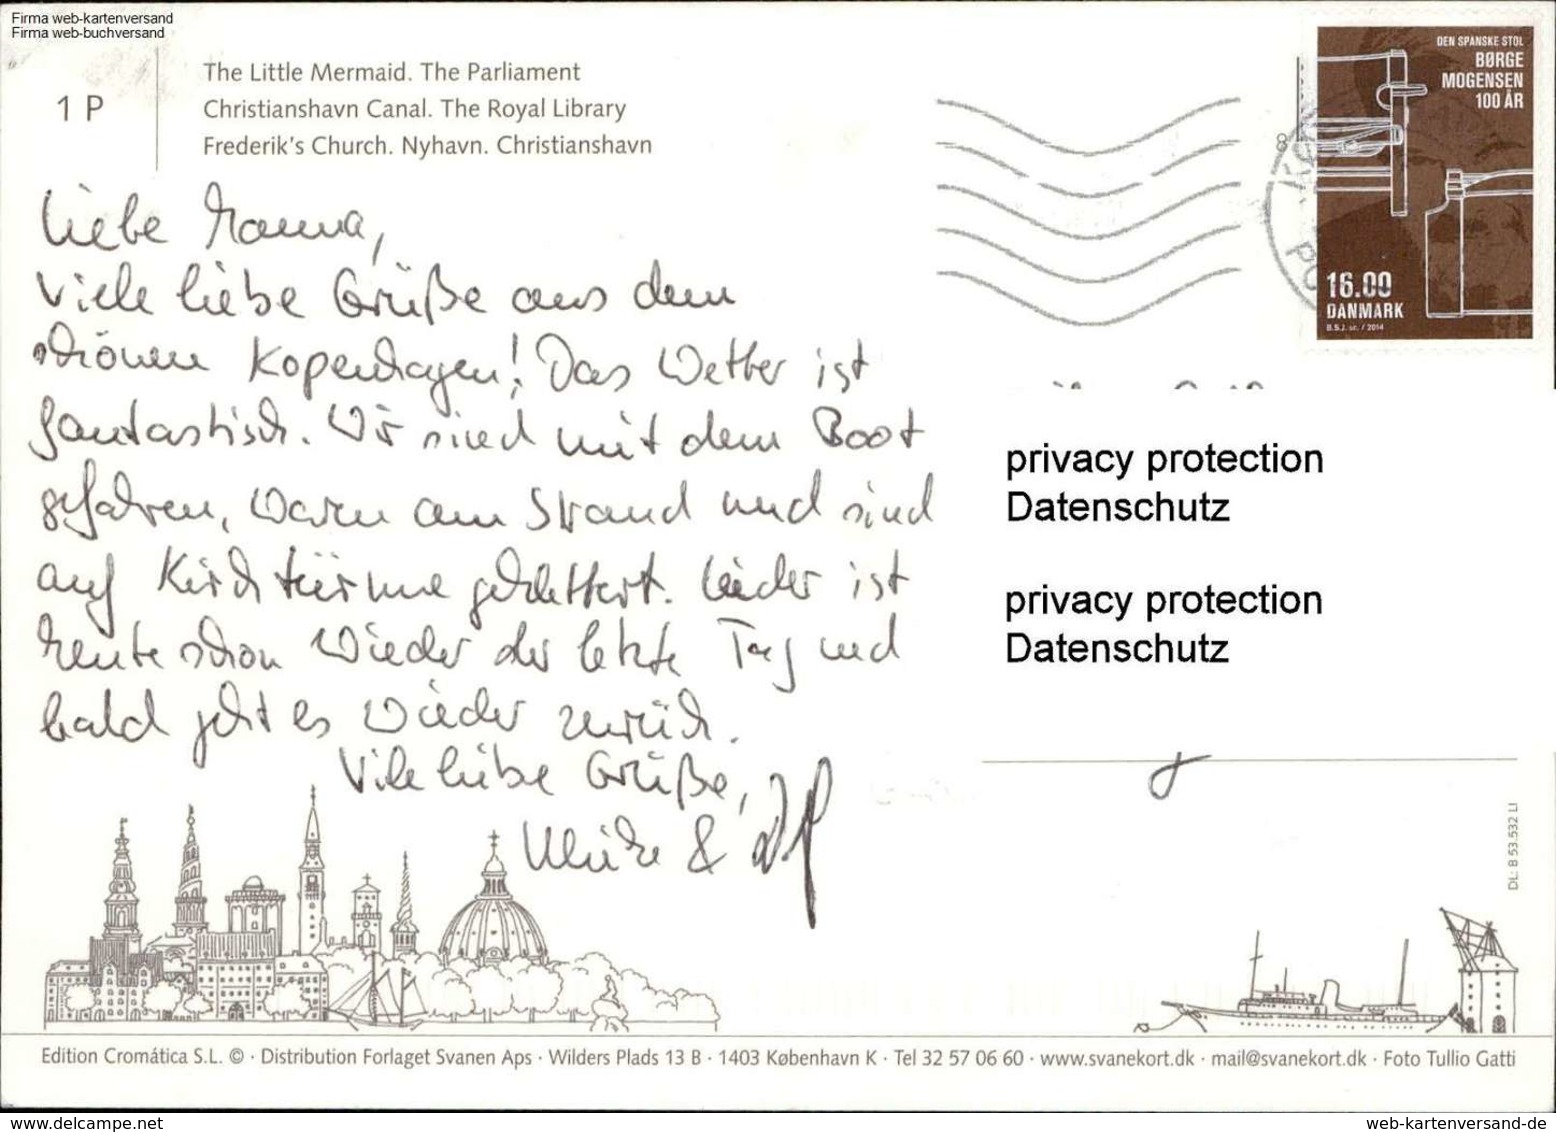 Firma web-kartenversand
Firma web-buchversand
1 P
The Little Mermaid. The Parliament
Christianshavn Canal. The Royal Library
Frederik's Church. Nyhavn. Christianshavn
DEN SPANSKE STOL
BØRGE
MOGENSEN
100 ÅR
16.00
DANMARK
B.S.J. sc. / 2014
Liebe Mama,
Viele liebe Grüße aus dem
schönen Kopenhagen! Das Wetter ist
fantastisch. Wir sind mit dem Boot
gefahren, waren am Strand und sind
auf Kirchtürme geklettert. Leider ist
heute schon wieder der letzte Tag und
bald geht es wieder zurück.
Viele liebe Grüße,
Ulrike &
privacy protection
Datenschutz
privacy protection
Datenschutz
DL: B 53.532 LI
Edition Cromática S.L. © · Distribution Forlaget Svanen Aps · Wilders Plads 13 B · 1403 København K · Tel 32 57 06 60 · www.svanekort.dk · mail@svanekort.dk · Foto Tullio Gatti
web-kartenversand@t-online.de
web-kartenversand-de